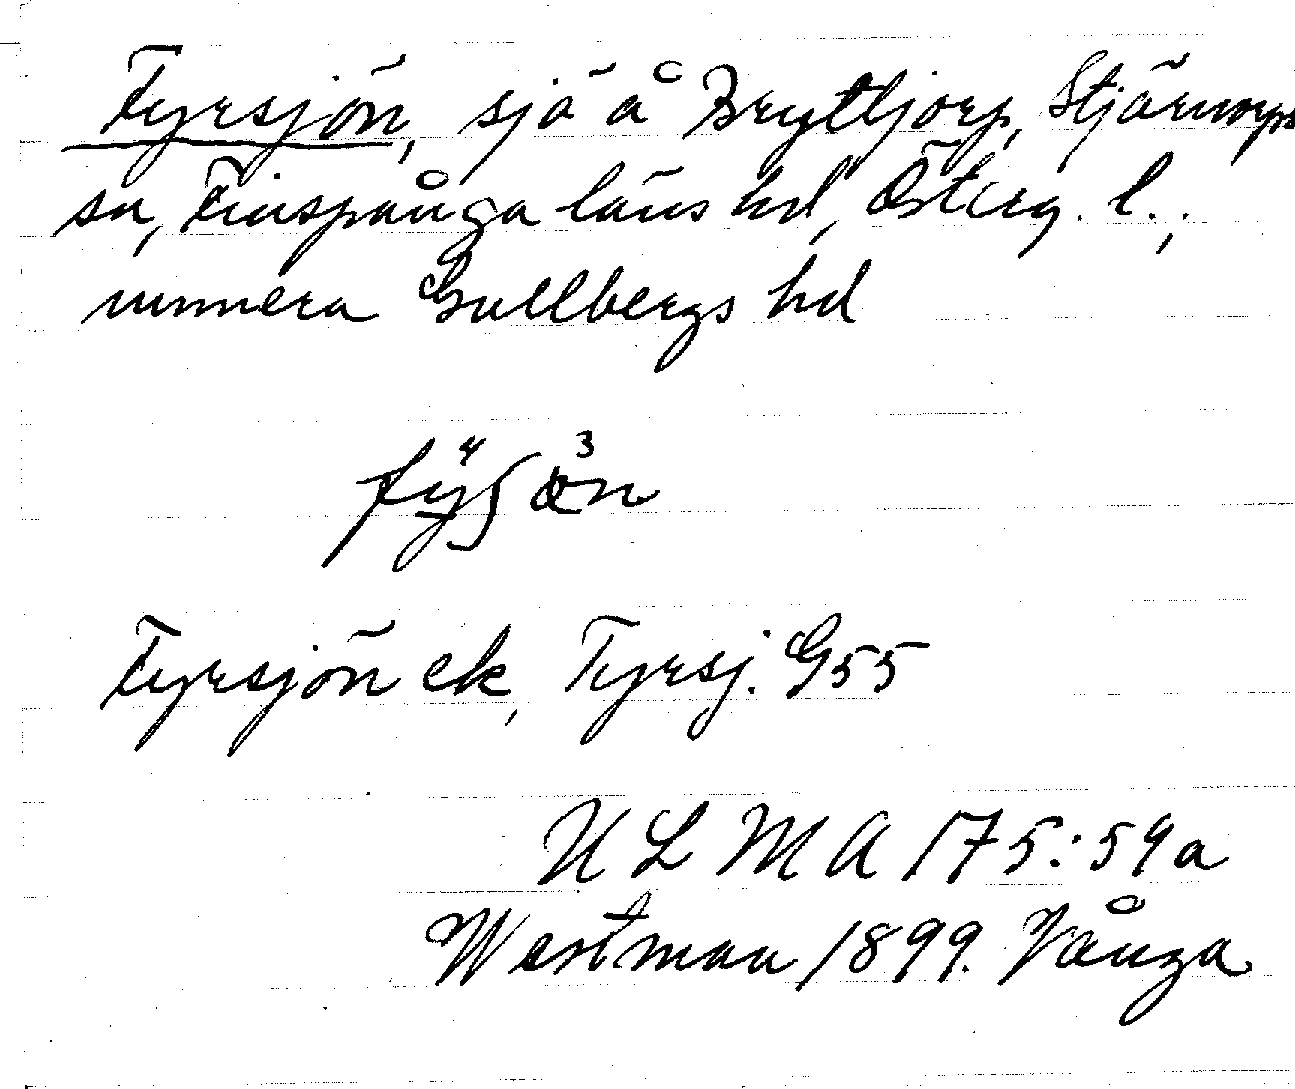 Fyrsjön, sjö å Bryttjorp, Stjärnorps
sn, Finspånga läns hd, Österg. l.,
numera Gullbergs hd
Fyrsjön ek, Tyrsj. G55
ULMA 175:59a
Westman 1899. Vånga